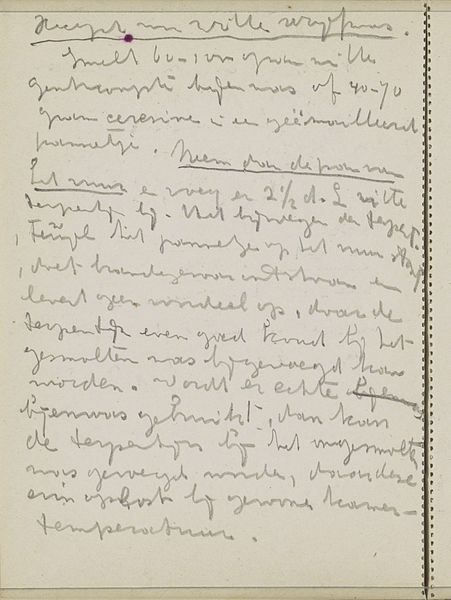 Recept van witte wrijfwas.
Smelt 60-100 gram witte
gebruikte bijenwas of 40-70
gram ceresine in een geëmailleerd
pannetje. Neem dan de pan van
het vuur en voeg er 2½ d.L witte
terpentijn bij. Het bijvoegen der terpent.
terwijl het pannetje op het vuur staat
, doet brandgevaar ontstaan en
levert geen voordeel op, daar de
terpentijn even goed koud bij het
gesmolten was bijgevoegd kan
worden. Wordt er echte
bijenwas gebruikt, dan kan
de terpentijn bij het ongesmolten
was gevoegd worden, daar deze
erin oplost bij gewone kamer-
temperatuur.